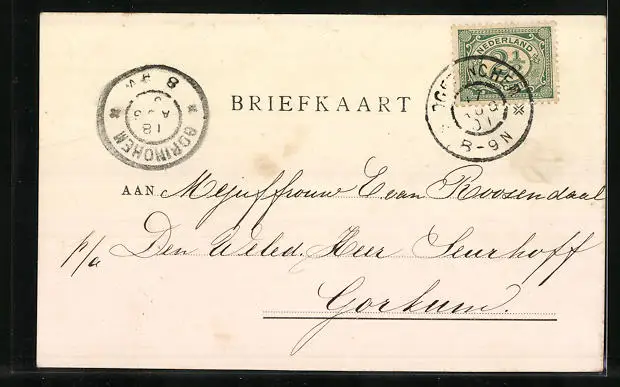 NEDERLAND
2½
GORINCHEM
8-9N
GORINCHEM
18
AUG
8
BRIEFKAART
AAN Mejuffrouw E. van Roosendaal
p/a Den Weled. Heer Seurhoff
Gorkum.